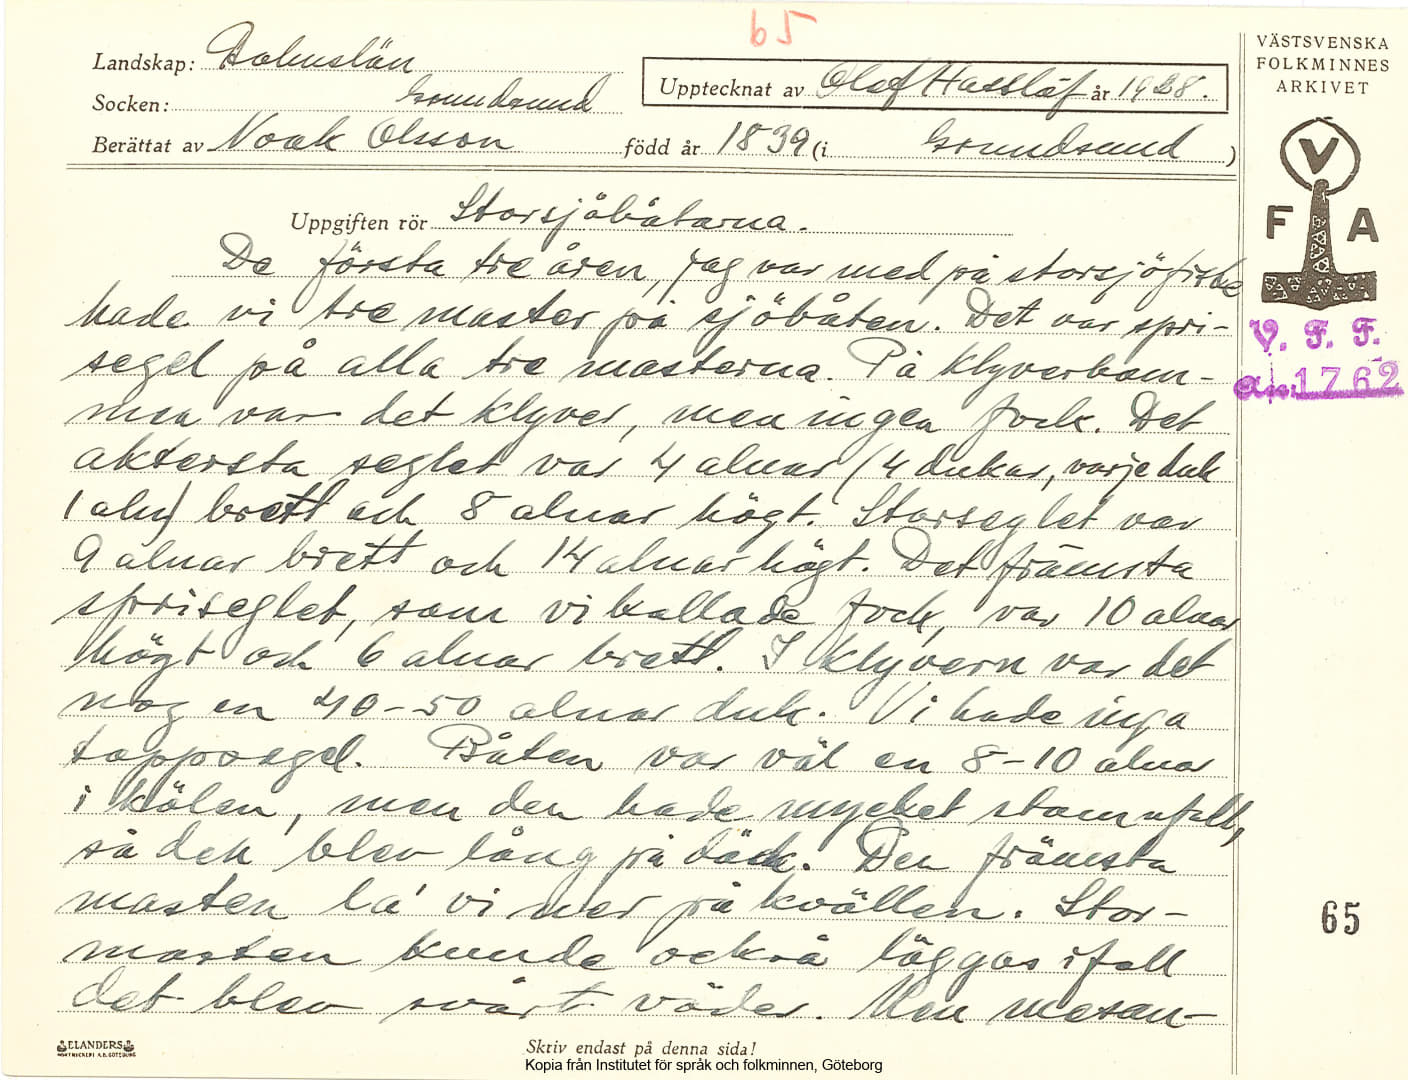 65
Landskap: Bohuslän
Socken: Grundsund
Upptecknat av Olof Hasslöf år 1928.
Berättat av Noak Olsson född år 1839 (i Grundsund)
VÄSTSVENSKA
FOLKMINNES
ARKIVET
V
F A
V. F. F.
1762
Uppgiften rör Storsjöbåtarna.
De första tre åren, jag var med på storsjöfiske
hade vi tre master på sjöbåten. Det var spri-
segel på alla tre masterna. På klyverbom-
men var det klyver, men ingen fock. Det
aktersta seglet var 4 alnar (4 dukar, varje duk
1 aln) brett och 8 alnar högt. Storseglet var
9 alnar brett och 14 alnar högt. Det främsta
spriseglet, som vi kallade fock, var 10 alnar
högt och 6 alnar brett. I klyvern var det
nog en 40-50 alnar duk. Vi hade inga
toppsegel. Båten var väl en 8-10 alnar
i kölen, men den hade mycket stamnfall,
så den blev lång på däck. Den främsta
masten la' vi ner på kvällen. Stor-
masten kunde också läggas ifall
det blev svårt väder. Men mesan-
65
ELANDERS
Skriv endast på denna sida!
Kopia från Institutet för språk och folkminnen, Göteborg